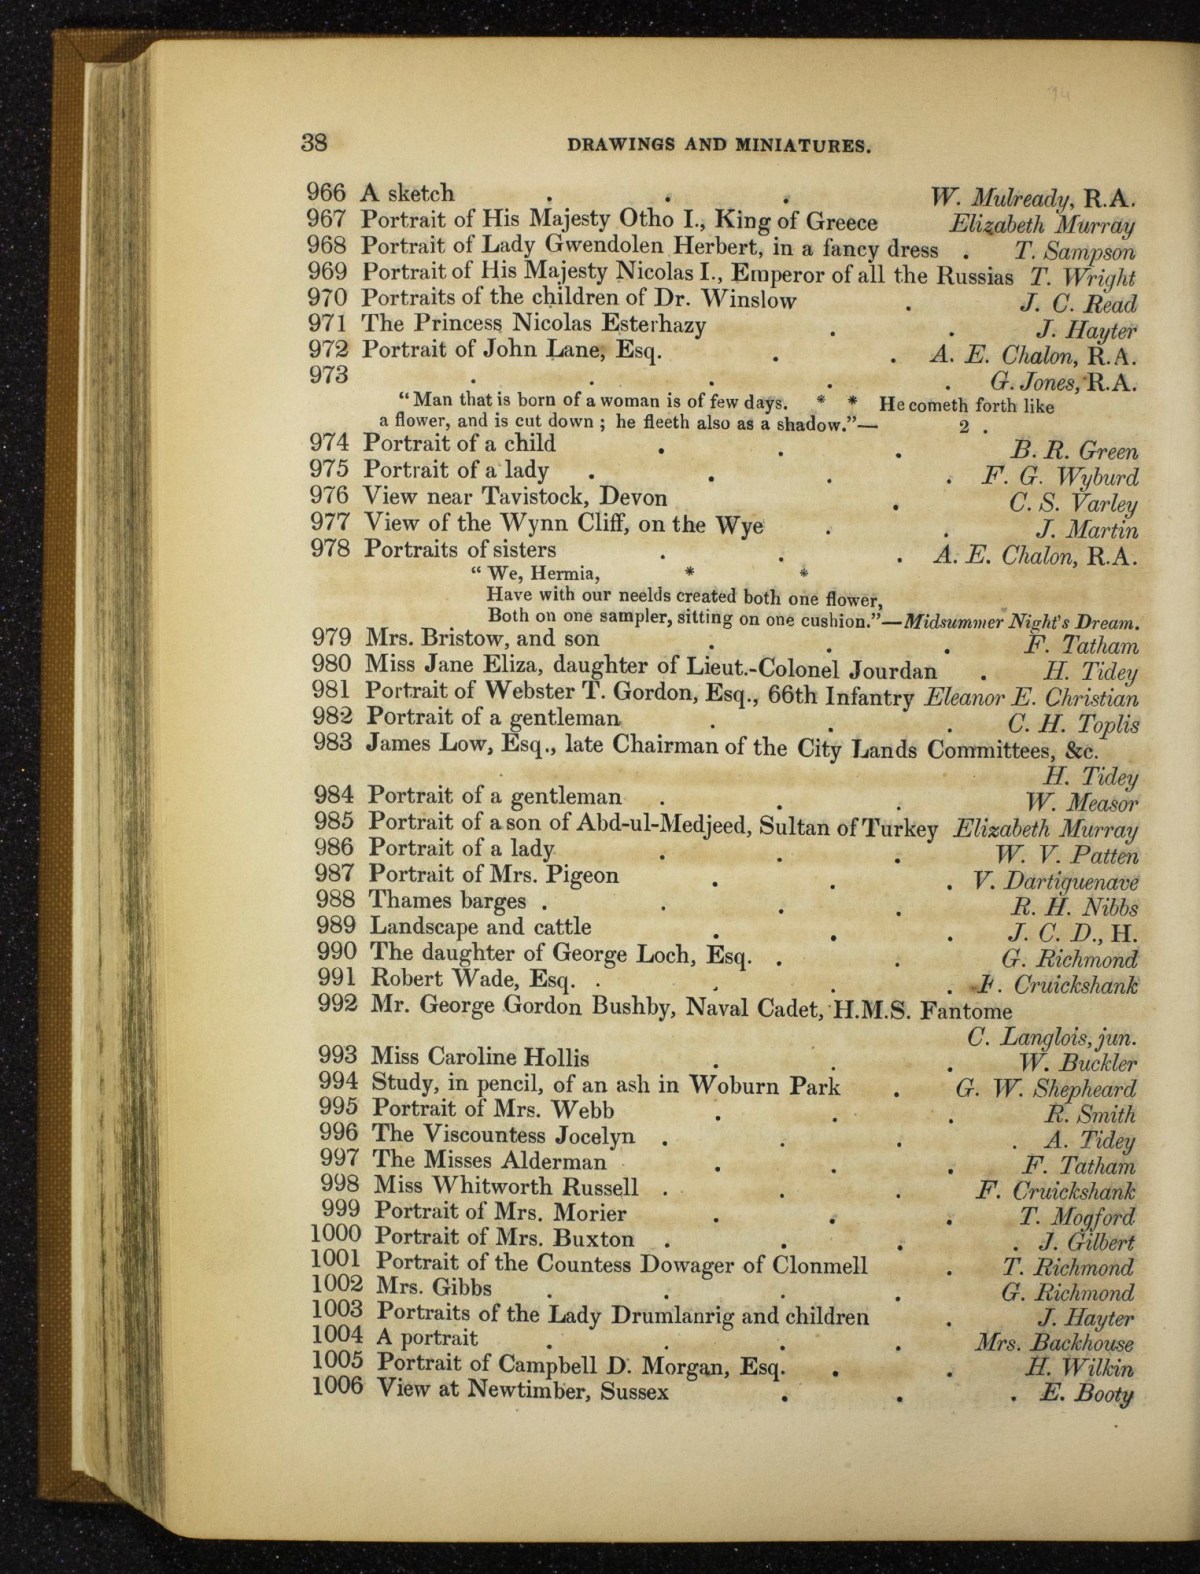 38 DRAWINGS AND MINIATURES.
966 A sketch . . . W. Mulready, R.A.
967 Portrait of His Majesty Otho I., King of Greece Elizabeth Murray
968 Portrait of Lady Gwendolen Herbert, in a fancy dress . T. Sampson
969 Portrait of His Majesty Nicolas I., Emperor of all the Russias T. Wright
970 Portraits of the children of Dr. Winslow . J. C. Read
971 The Princess Nicolas Esterhazy . . J. Hayter
972 Portrait of John Lane, Esq. . . A. E. Chalon, R.A.
973 . . . . . G. Jones, R.A.
“Man that is born of a woman is of few days. * * He cometh forth like
a flower, and is cut down ; he fleeth also as a shadow.”— 2 .
974 Portrait of a child . . . B. R. Green
975 Portrait of a lady . . . . F. G. Wyburd
976 View near Tavistock, Devon . C. S. Varley
977 View of the Wynn Cliff, on the Wye . . J. Martin
978 Portraits of sisters . . . A. E. Chalon, R.A.
“ We, Hermia, * *
Have with our neelds created both one flower,
Both on one sampler, sitting on one cushion.”—Midsummer Night's Dream.
979 Mrs. Bristow, and son . . . F. Tatham
980 Miss Jane Eliza, daughter of Lieut.-Colonel Jourdan . H. Tidey
981 Portrait of Webster T. Gordon, Esq., 66th Infantry Eleanor E. Christian
982 Portrait of a gentleman . . . C. H. Toplis
983 James Low, Esq., late Chairman of the City Lands Committees, &c.
H. Tidey
984 Portrait of a gentleman . . . W. Measor
985 Portrait of a son of Abd-ul-Medjeed, Sultan of Turkey Elizabeth Murray
986 Portrait of a lady . . . W. V. Patten
987 Portrait of Mrs. Pigeon . . . V. Dartiguenave
988 Thames barges . . . . R. H. Nibbs
989 Landscape and cattle . . . J. C. D., H.
990 The daughter of George Loch, Esq. . . G. Richmond
991 Robert Wade, Esq. . . . . F. Cruickshank
992 Mr. George Gordon Bushby, Naval Cadet, H.M.S. Fantome
C. Langlois, jun.
993 Miss Caroline Hollis . . . W. Buckler
994 Study, in pencil, of an ash in Woburn Park . G. W. Shepheard
995 Portrait of Mrs. Webb . . . R. Smith
996 The Viscountess Jocelyn . . . . A. Tidey
997 The Misses Alderman . . . F. Tatham
998 Miss Whitworth Russell . . . F. Cruickshank
999 Portrait of Mrs. Morier . . . T. Mogford
1000 Portrait of Mrs. Buxton . . . . J. Gilbert
1001 Portrait of the Countess Dowager of Clonmell . T. Richmond
1002 Mrs. Gibbs . . . . G. Richmond
1003 Portraits of the Lady Drumlanrig and children . J. Hayter
1004 A portrait . . . . Mrs. Backhouse
1005 Portrait of Campbell D. Morgan, Esq. . . H. Wilkin
1006 View at Newtimber, Sussex . . . E. Booty